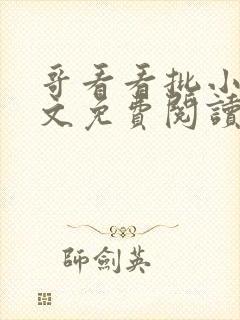 哥看看批小
文免費閱讀
師劍英